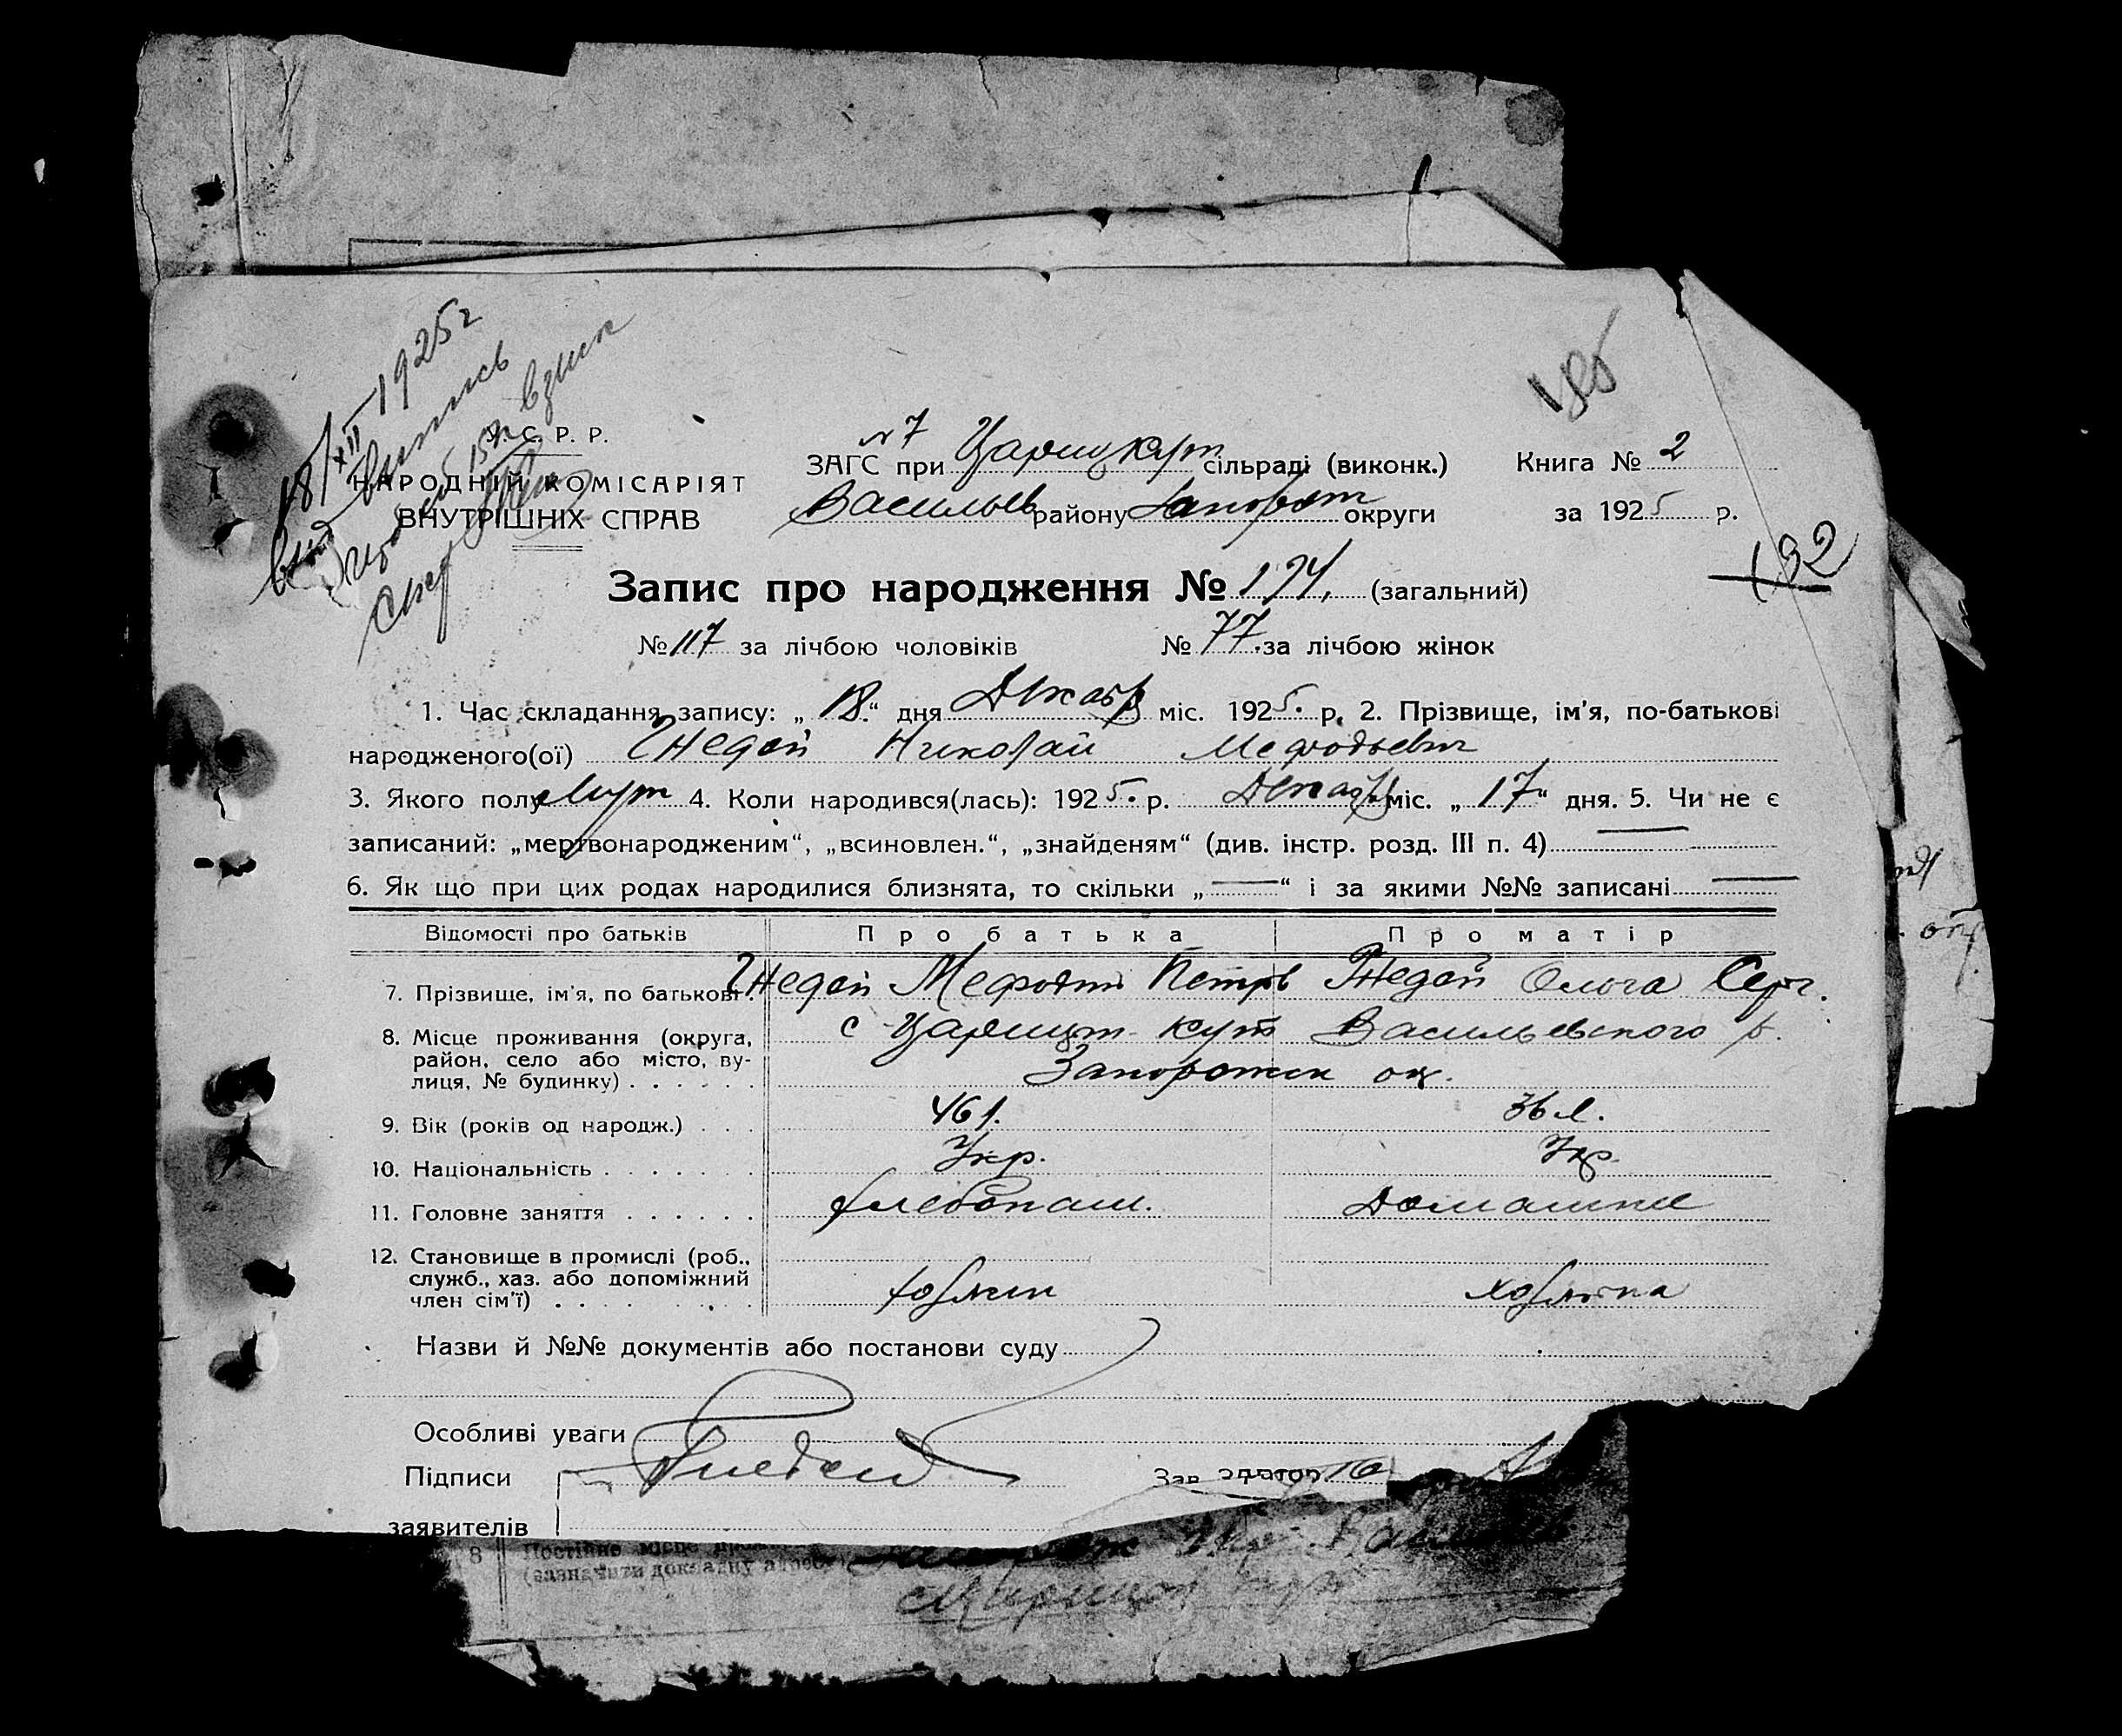 18/XII 1925 г
выпись
взиск
У. С. Р. Р.
НАРОДНІЙ КОМІСАРІЯТ
ВНУТРІШНІХ СПРАВ
№ 7
ЗАГС при Царицкут сільраді (виконк.)
Васильев району Запорож округи
Книга № 2
за 1925 р.
192
Запис про народження № 194, (загальний)
№ 117 за лічбою чоловіків № 77. за лічбою жінок
1. Час складання запису: „18.“ дня Декабр міс. 1925. р. 2. Прізвище, ім'я, по-батькові
народженого(ої) Гнедой Николай Мефодьевич
3. Якого полу Муж 4. Коли народився(лась): 1925. р. Декабр міс. „17“ дня. 5. Чи не є
записаний: „мертвонародженим“, „всиновлен.“, „знайденям“ (див. інстр. розд. III п. 4)
6. Як що при цих родах народилися близнята, то скільки „—“ і за якими №№ записані —
Відомості про батьків Про батька Про матір
7. Прізвище, ім'я, по батькові Гнедой Мефодий Петров Гнедой Ольга Серг.
8. Місце проживання (округа, с Царицын кут Васильевского р.
район, село або місто, ву-
лиця, № будинку) Запорожск ок.
9. Вік (років од народж.) 46 л. 36 л.
10. Національність Укр. Укр.
11. Головне заняття хлебопаш. Домашнее
12. Становище в промислі (роб.,
служб., хаз. або допоміжний
член сім'ї) хозяин хозяйка
Назви й №№ документів або постанови суду
Особливі уваги
Підписи Гнедой
Зав.
заявителів
8 Постійне місце
(зазначити докладну адресу)